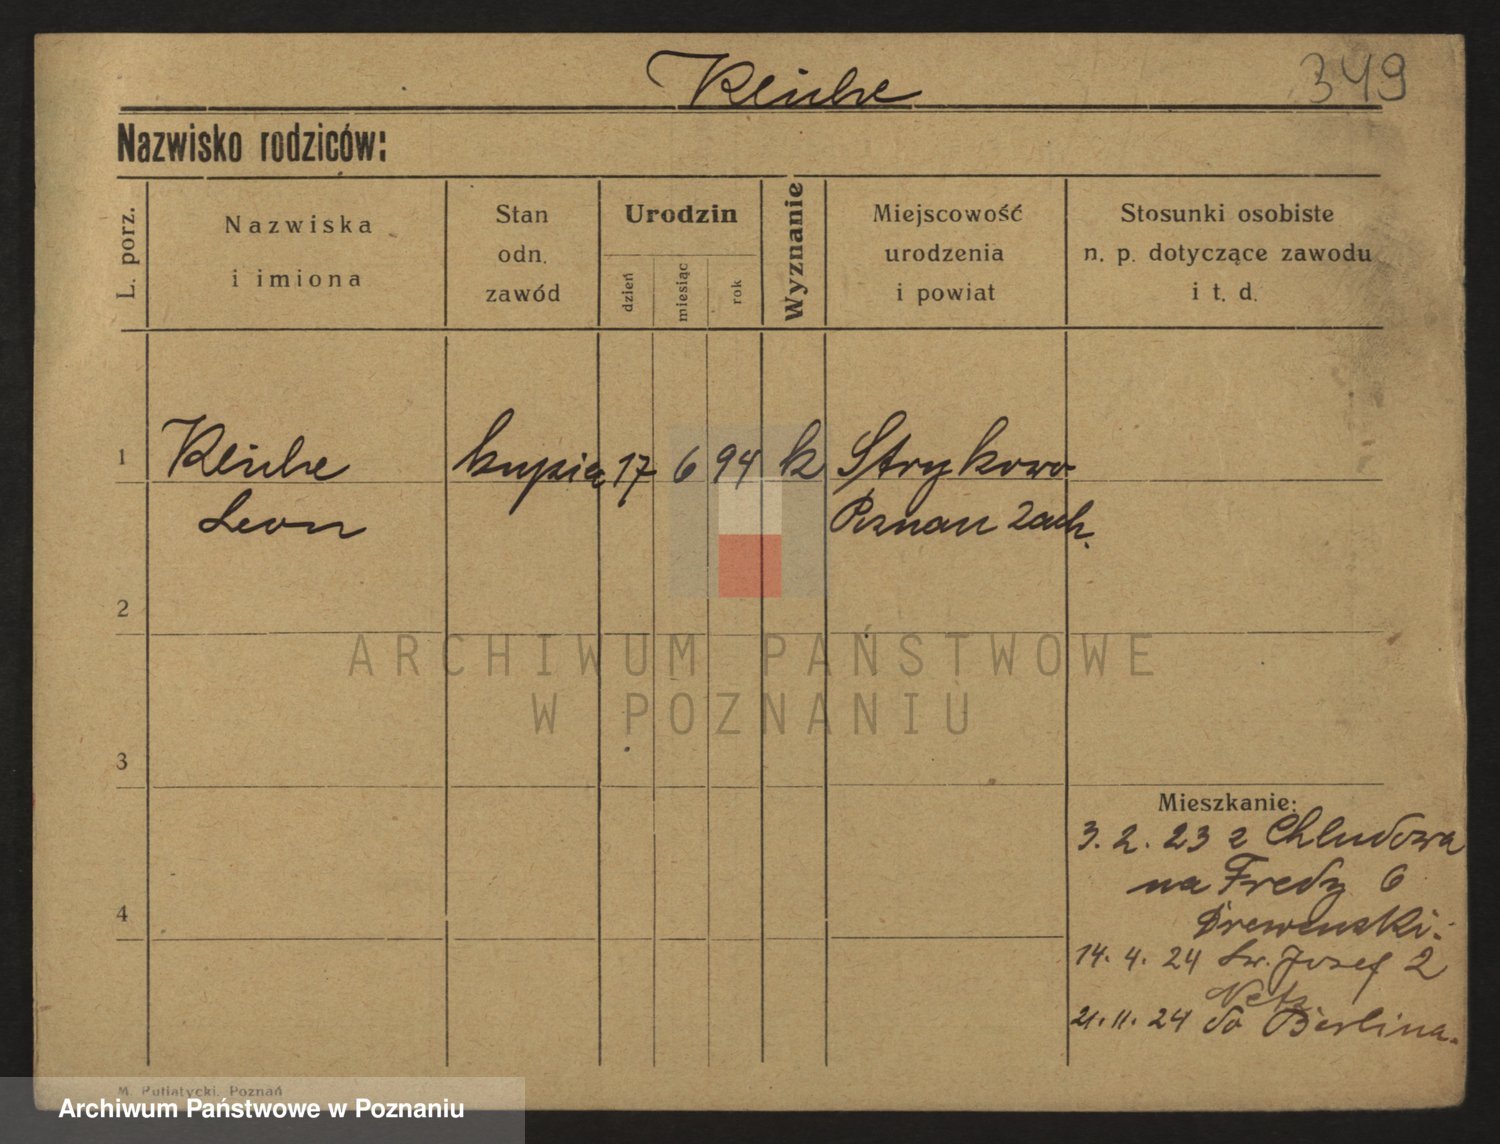 349
Nazwisko rodziców:
L. porz.
Nazwiska
i imiona
Stan
odn.
zawód
Urodzin
dzień
miesiąc
rok
Wyznanie
Miejscowość
urodzenia
i powiat
Stosunki osobiste
n. p. dotyczące zawodu
i t. d.
1
Leon
kupiec
17 6 94 k
Strykowo
Poznan Zach.
2
ARCHIWUM PAŃSTWOWE
W POZNANIU
3
Mieszkanie:
3. 2. 23 z Chludowa
na Fredry 6
4
14. 4. 24 Św. Jozef 2
21. 11. 24 do Berlina.
M. Putiatycki, Poznań
Archiwum Państwowe w Poznaniu